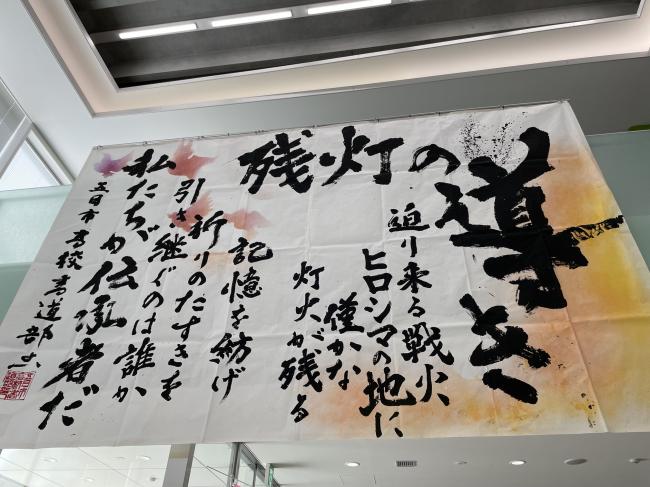 残灯の
導き
迫り来る戦火
ヒロシマの地に
僅かな
灯火が残る
記憶を紡げ
祈りのたすきを
引き継ぐのは誰か
私たちが伝承者だ
五日市高校書道部